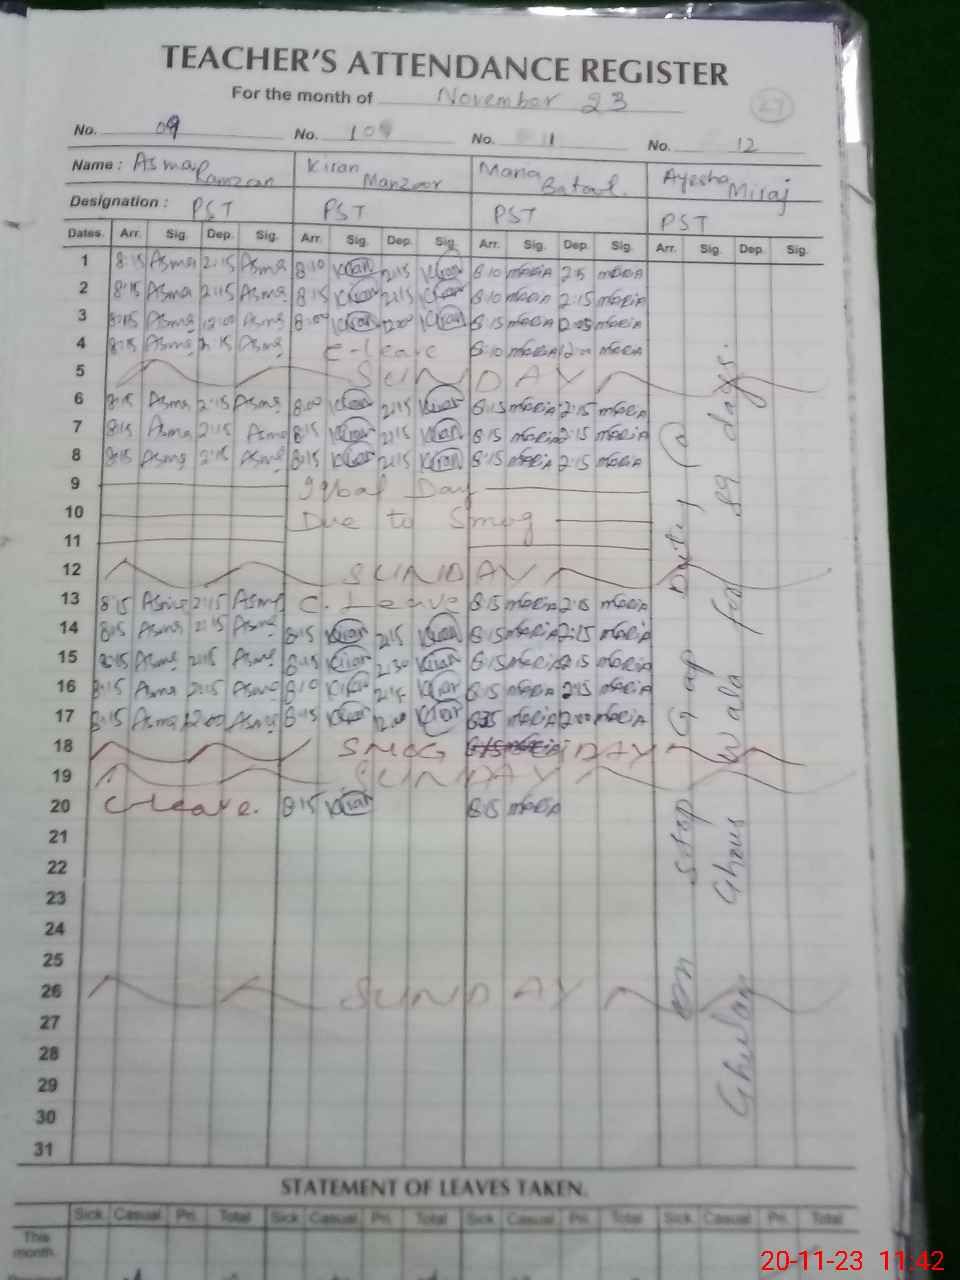 TEACHER'S ATTENDANCE REGISTER
For the month of November 23
27
No. 09 No. 10 No. 11 No. 12
Name : Asma Ramzan Kiran Manzoor Maria Batool. Ayesha Miraj
Designation : PST PST PST PST
Dates. Arr. Sig. Dep. Sig. Arr. Sig. Dep. Sig. Arr. Sig. Dep. Sig. Arr. Sig. Dep. Sig.
1 8:15 Asma 2:15 Asma 8:10 Kiran 2:15 Kiran 8:10 maria 2:15 maria
2 8:15 Asma 2:15 Asma 8:15 Kiran 2:15 Kiran 8:10 maria 2:15 maria
3 8:15 Asma 12:00 Asma 8:00 Kiran 12:00 Kiran 8:15 maria 12:05 maria
4 8:15 Asma 2:15 Asma C-Leave 8:10 maria 2:00 maria
5 SUNDAY
6 8:15 Asma 2:15 Asma 8:00 Kiran 2:15 Kiran 8:15 maria 2:15 maria
7 8:15 Asma 2:15 Asma 8:15 Kiran 2:15 Kiran 8:15 maria 2:15 maria
8 8:15 Asma 2:15 Asma 8:15 Kiran 2:15 Kiran 8:15 maria 2:15 maria
9 Iqbal Day
10 Due to Smog
11
12 SUNDAY
13 8:15 Asma 2:15 Asma C. Leave 8:15 maria 2:15 maria
14 8:15 Asma 2:15 Asma 8:15 Kiran 2:15 Kiran 8:15 maria 2:15 maria
15 8:15 Asma 2:15 Asma 8:15 Kiran 2:30 Kiran 8:15 maria 2:15 maria
16 8:15 Asma 2:15 Asma 8:10 Kiran 2:15 Kiran 8:15 maria 2:15 maria
17 8:15 Asma 12:00 Asma 8:15 Kiran 12:00 Kiran maria 12:00 maria
18 SMOG DAY
19 SUNDAY
20 C-leave. 8:15 Kiran 8:15 maria
21
22
23
24
25
26 SUNDAY
27
28
29
30
31
on stop Gap Duty @
Ghous Wala for 89 days.
STATEMENT OF LEAVES TAKEN.
Sick Casual Pri. Total Sick Casual Pri. Total Sick Casual Pri. Total Sick Casual Pri. Total
This month.
20-11-23 11:42